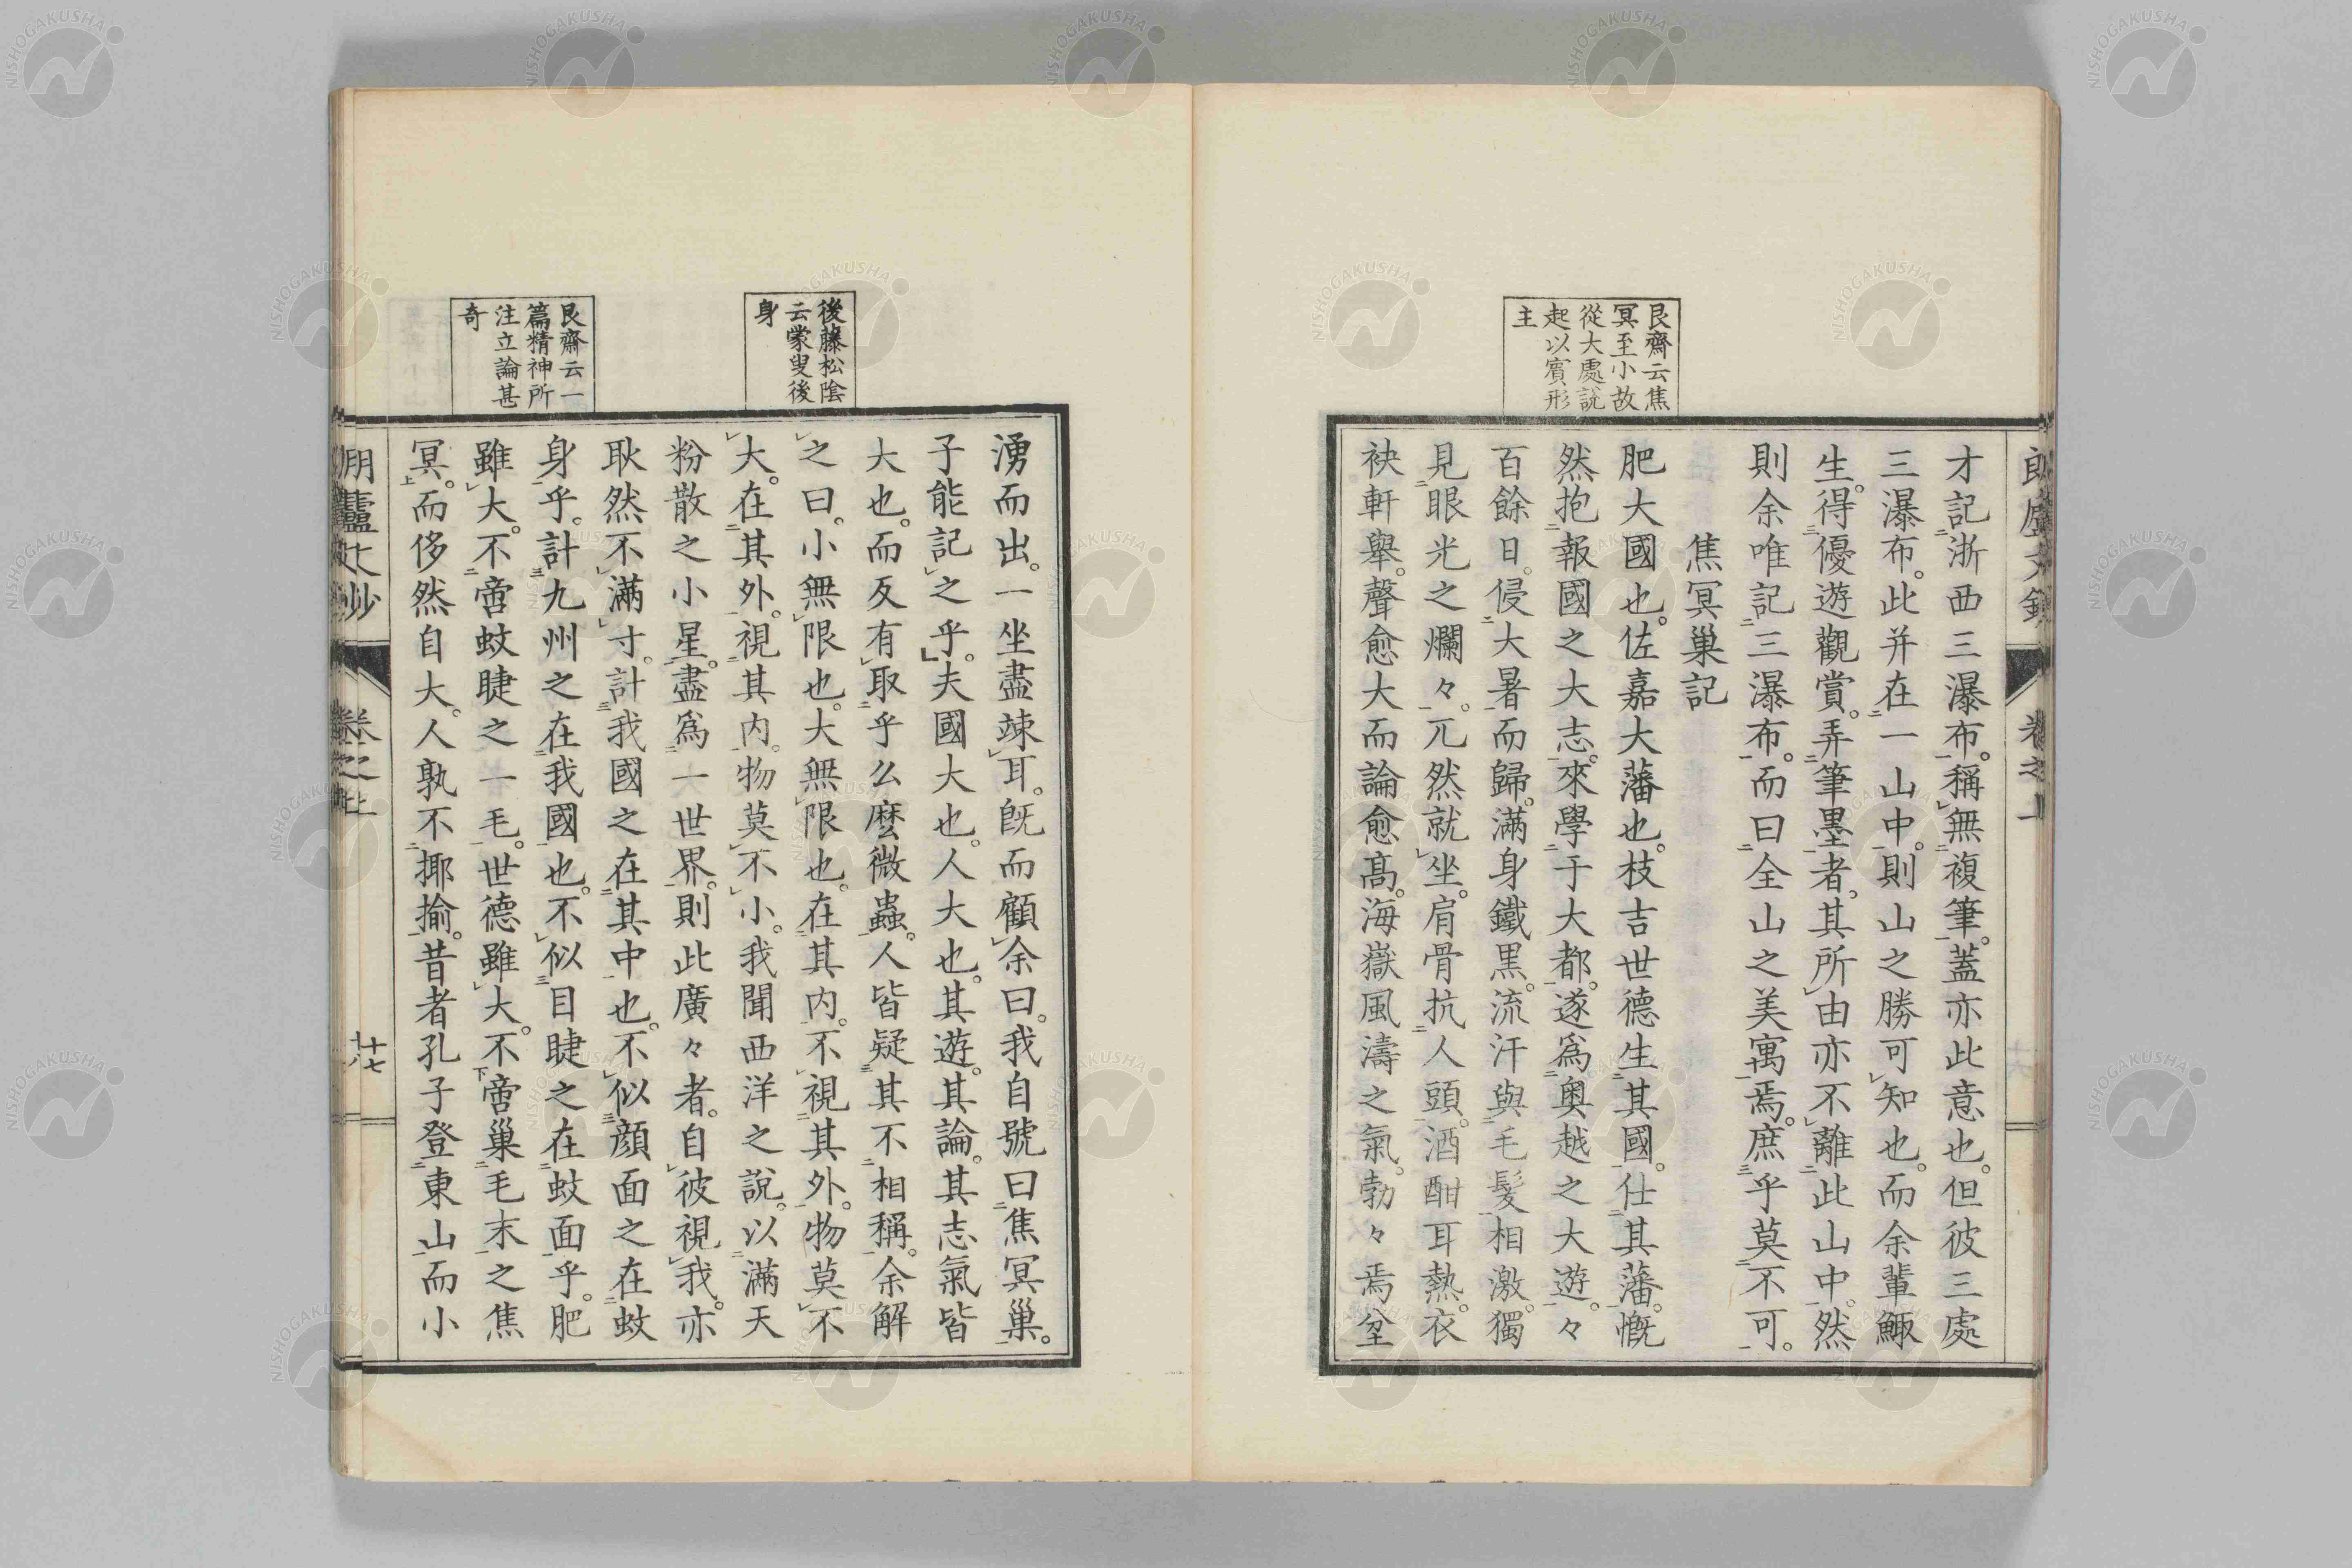 艮齋云焦
冥至小故
從大處説
起以賓形
主
才記浙西三瀑布。稱無複筆。蓋亦此意也。但彼三處
三瀑布。此并在一山中。則山之勝可知也。而余輩鯫
生。得優遊觀賞。弄筆墨者。其所由亦不離此山中。然
則余唯記三瀑布。而曰全山之美寓焉。庶乎莫不可。
焦冥巢記
肥大國也。佐嘉大藩也。枝吉世德生其國。仕其藩。慨
然抱報國之大志。來學于大都。遂爲奥越之大遊。々
百餘日。侵大暑而歸。滿身鐵黒。流汗與毛髮相激。獨
見眼光之爛々。兀然就坐。肩骨抗人頭。酒酣耳熱。衣
袂軒舉。聲愈大而論愈髙。海嶽風濤之氣。勃々焉坌
後藤松陰
云蒙叟後
身
艮齋云一
篇精神所
注立論甚
奇
湧而出。一坐盡竦耳。既而顧余曰。我自號曰焦冥巢。
子能記之乎。夫國大也。人大也。其遊。其論。其志氣皆
大也。而反有取乎么麼微蟲。人皆疑其不相稱。余解
之曰。小無限也。大無限也。在其内。不視其外。物莫不
大。在其外。視其内。物莫不小。我聞西洋之說。以滿天
粉散之小星。盡爲一世界。則此廣々者。自彼視我。亦
耿然不滿寸。計我國之在其中也。不似顔面之在蚊
身乎。計九州之在我國也。不似目睫之在蚊面乎。肥
雖大。不啻蚊睫之一毛。世德雖大。不啻巢毛末之焦
冥。而侈然自大。人孰不揶揄。昔者孔子登東山而小
卷之上
十七